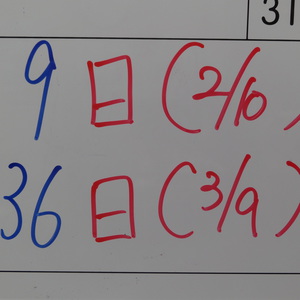 31
9日(2/10)
36日(3/9)